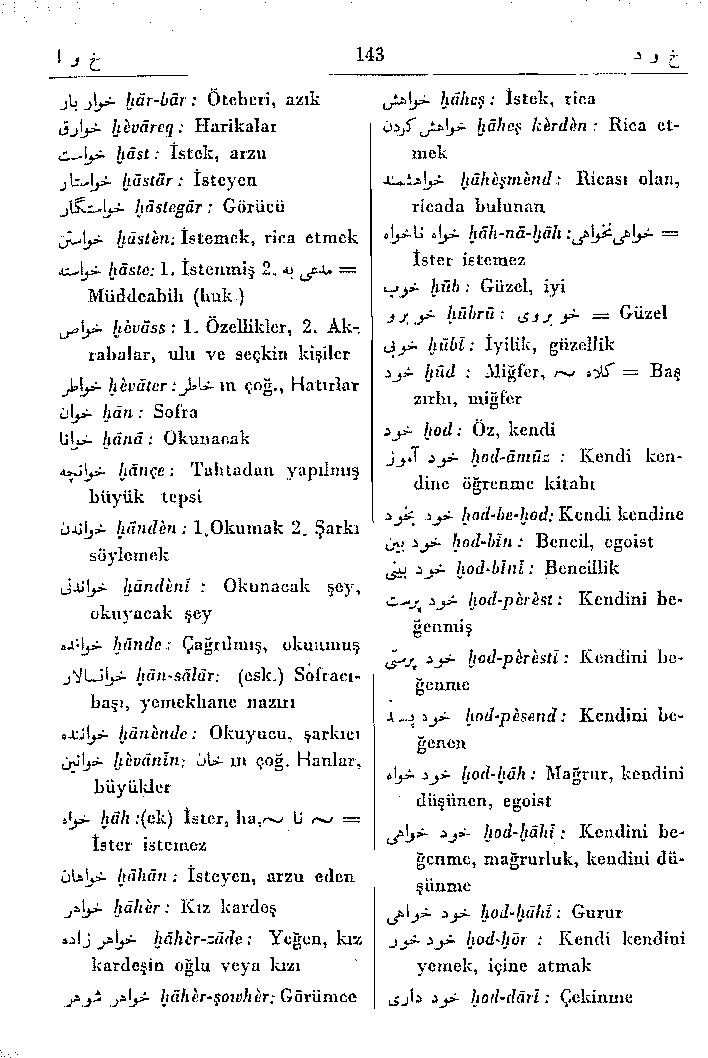 خ و ا 143 خ و د
خوار بار ḫār-bār : Öteberi, azık
خوارق ḫèvāreq : Harikalar
خواست ḫāst : İstek, arzu
خواستار ḫāstār : İsteyen
خواستگار ḫāstegār : Görücü
خواستن ḫāstèn: İstemek, rica etmek
خواسته ḫāste: 1. İstenmiş 2. مدعی به =
Müddeabih (huk.)
خواص ḫèvāss : 1. Özellikler, 2. Ak-
rabalar, ulu ve seçkin kişiler
خواطر ḫèvāter : خاطر ın çoğ., Hatırlar
خوان ḫān : Sofra
خوانا ḫānā : Okunacak
خوانچه ḫānçe : Tahtadan yapılmış
büyük tepsi
خواندن ḫāndèn : 1.Okumak 2. Şarkı
söylemek
خواندنی ḫāndènī : Okunacak şey,
okuyacak şey
خوانده ḫānde : Çağrılmış, okunmuş
خوانسالار ḫān-sālār: (esk.) Sofracı-
başı, yemekhane nazırı
خواننده ḫānènde : Okuyucu, şarkıcı
خوانین ḫèvānīn: خان ın çoğ. Hanlar,
büyükler
خواه ḫāh :(ek) İster, ha. ~ نا ~ =
İster istemez
خواهان ḫāhān : İsteyen, arzu eden
خواهر ḫāhèr : Kız kardeş
خواهر زاده ḫāhèr-zāde : Yeğen, kız
kardeşin oğlu veya kızı
خواهر شوهر ḫāhèr-şowhèr: Görümce
خواهش ḫāheş : İstek, rica
خواهش کردن ḫāheş kèrdèn : Rica et-
mek
خواهشمند ḫāhèşmènd : Ricası olan,
ricada bulunan
خواه ناخواه ḫāh-nā-ḫāh : خواهی نخواهی =
İster istemez
خوب ḫūb : Güzel, iyi
خوبرو ḫūbrū : خوبروی = Güzel
خوبی ḫūbī : İyilik, güzellik
خود ḫūd : Miğfer, ~ کلاه = Baş
zırhı, miğfer
خود ḫod : Öz, kendi
خود آموز ḫod-āmūz : Kendi ken-
dine öğrenme kitabı
خود بخود ḫod-be-ḫod: Kendi kendine
خود بین ḫod-bīn : Bencil, egoist
خود بینی ḫod-bīnī : Bencillik
خود پرست ḫod-pèrèst : Kendini be-
ğenmiş
خود پرستی ḫod-pèrèstī : Kendini be-
ğenme
خود پسند ḫod-pèsend : Kendini be-
ğenen
خود خواه ḫod-ḫāh : Mağrur, kendini
düşünen, egoist
خود خواهی ḫod-ḫāhī : Kendini be-
ğenme, mağrurluk, kendini dü-
şünme
خود خواهی ḫod-ḫāhī : Gurur
خود خور ḫod-ḫōr : Kendi kendini
yemek, içine atmak
خود داری ḫod-dārī : Çekinme